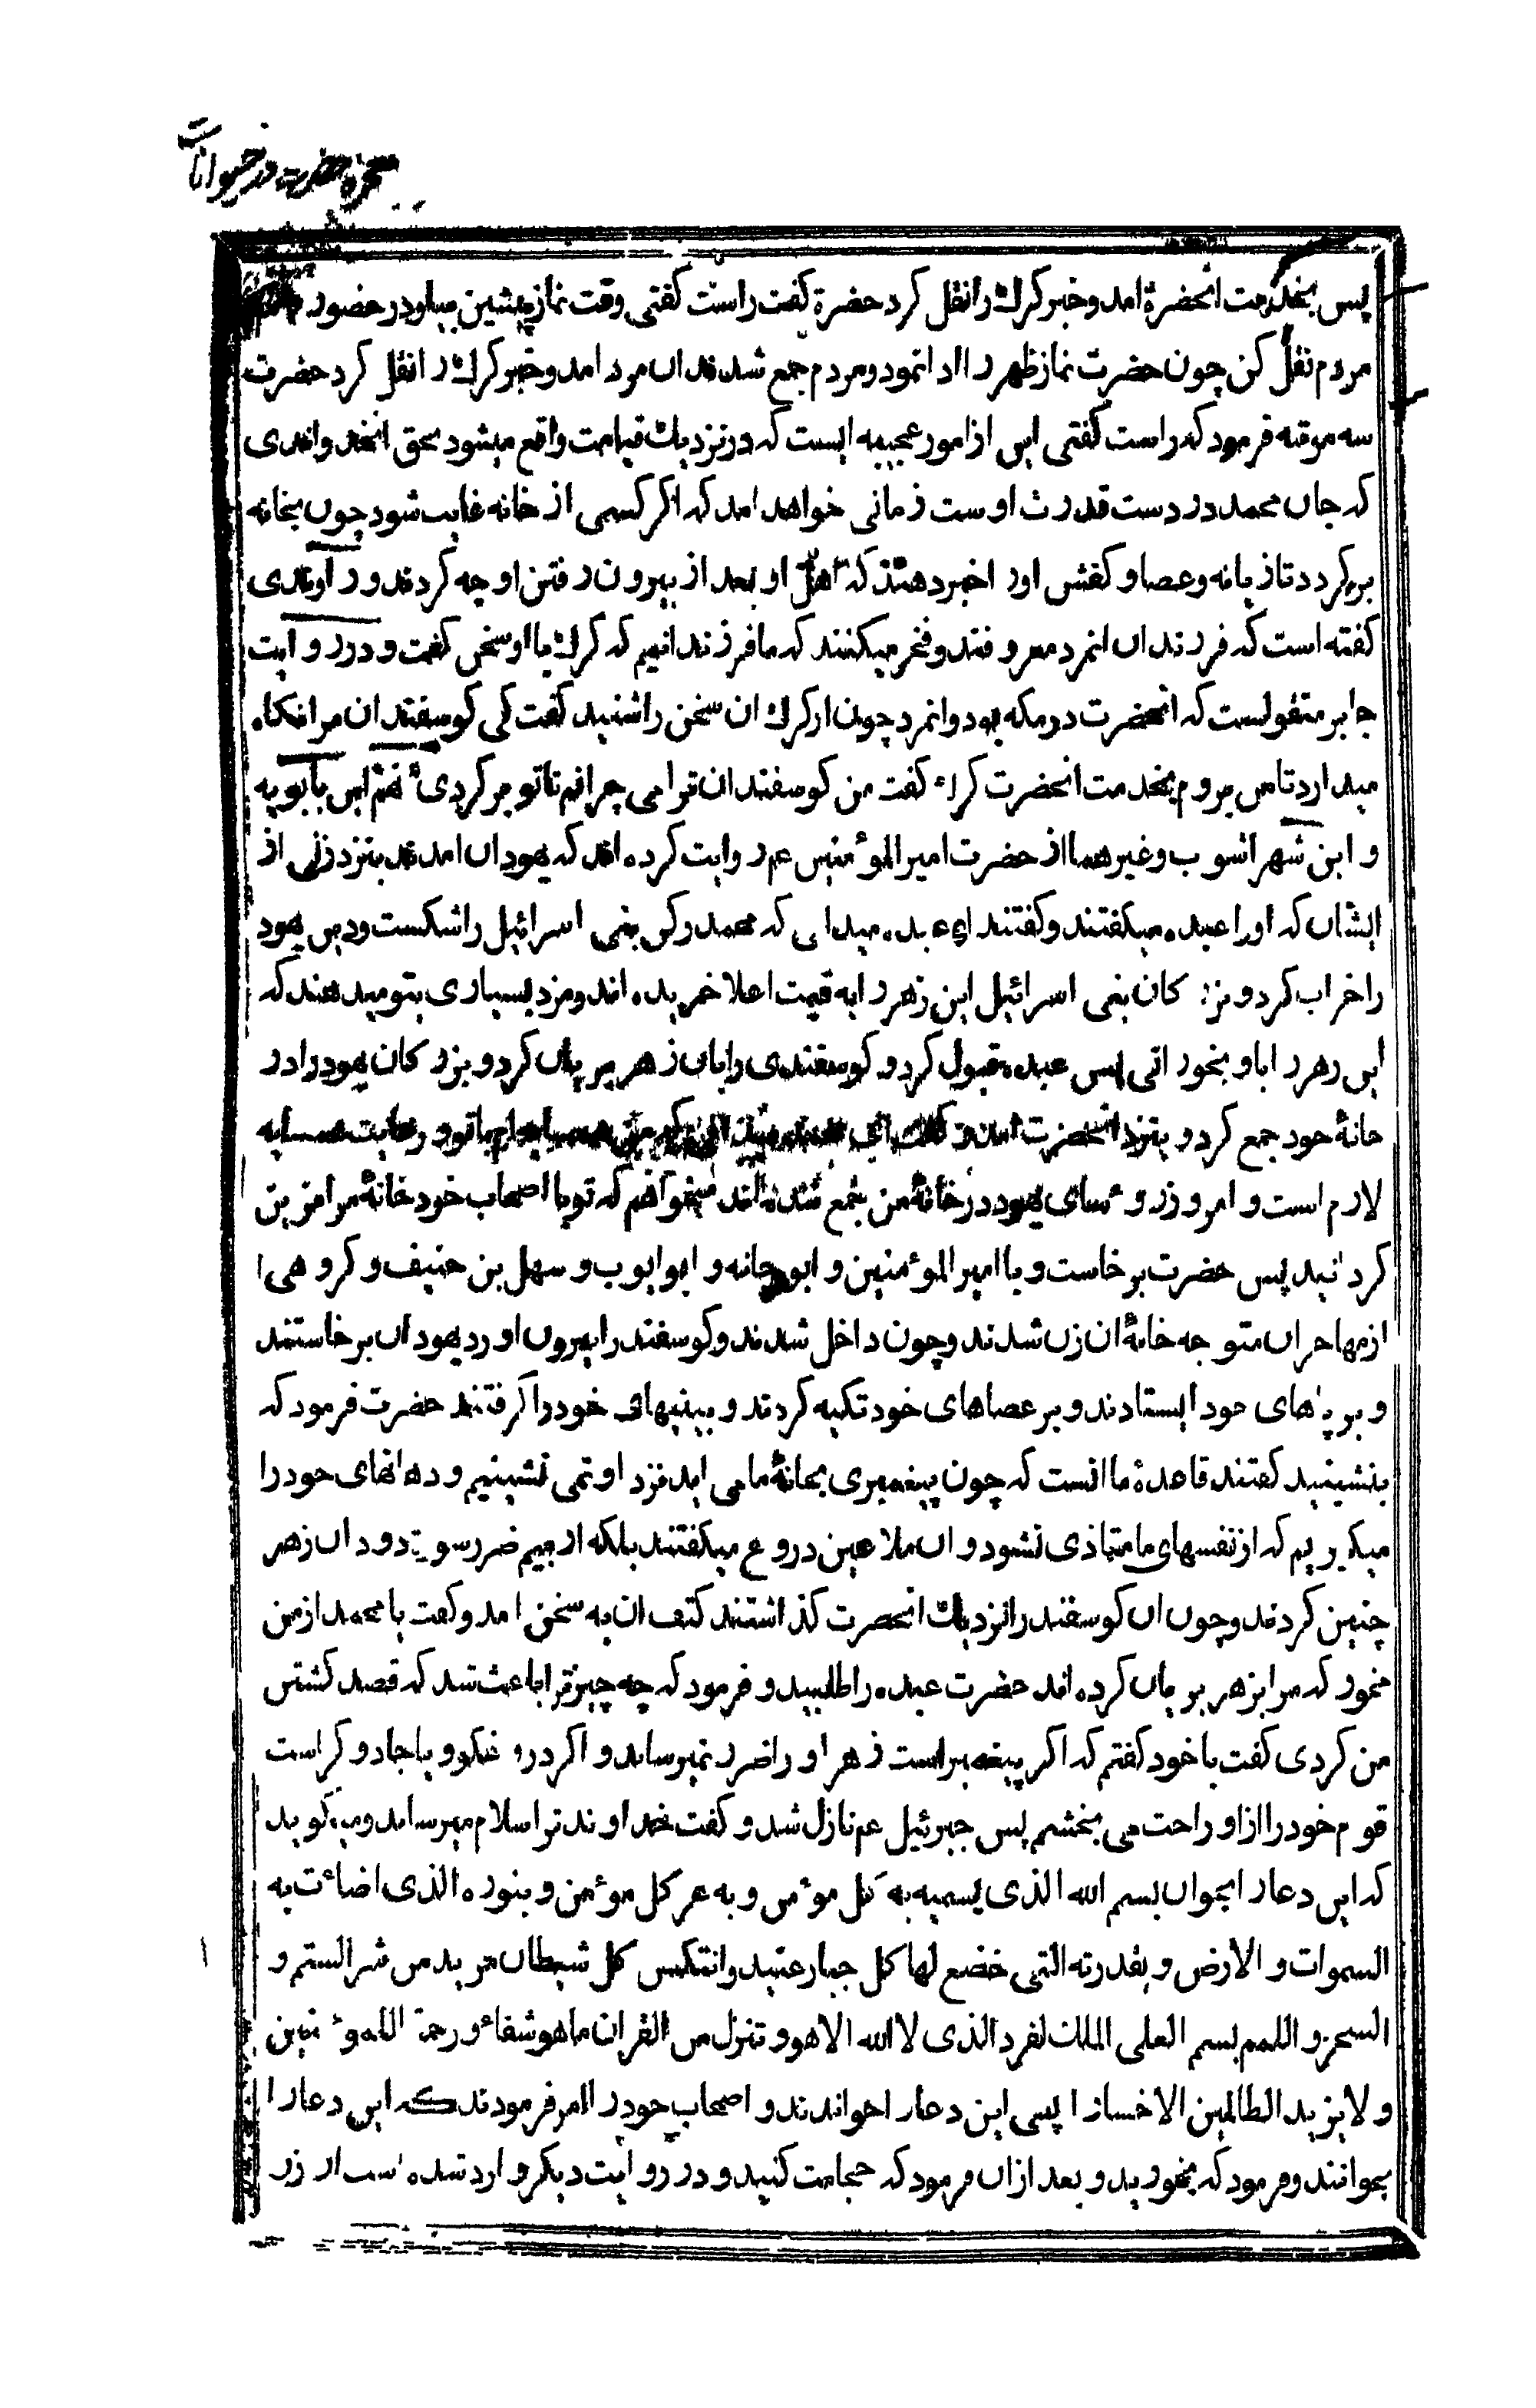 معجزه حضرت در حیوانات
پس بخدمت انحضرة امد و خبر کرک را نقل کرد حضرة کفت راست کفتی وقت نماز پیشین بیا و در حضور
مردم نقل کن چون حضرت نماز ظهر را ادا نمود و مردم جمع شدند ان مرد امد و خبر کرک را نقل کرد حضرت
سه مرتبه فرمود که راست کفتی این از امور عجیبه ایست که در نزدیک قیامت واقع میشود بحق انخداوندی
که جان محمد در دست قدرت اوست زمانی خواهد امد که اکر کسی از خانه غایب شود چون بخانه
برکردد تازیانه و عصا و کفش او را خبر دهند که اهل او بعد از بیرون رفتن او چه کردند و راوندی
کفته است که فرزندان انمرد معروفند و فخر میکنند که ما فرزند انیم که کرک با او سخن کفت و در روایت
جابر منقولست که انحضرت در مکه بود و انمرد چون از کرک ان سخن را شنید کفت کی کوسفندان مرا نکاه
میدارد تا من بروم بخدمت انحضرت کرک کفت من کوسفندان ترا می چرانم تا تو برکردی نهم ابن بابویه
و ابن شهر اشوب و غیر هما از حضرت امیر المؤمنین عم روایت کرده اند که یهودان امدند بنزد زنی از
ایشان که او را عبده میکفتند و کفتند ای عبده میدانی که محمد رکن بنی اسرائیل را شکست و دین یهود
را خراب کرد و بزرکان بنی اسرائیل این زهر را به قیمت اعلا خریده اند و مزد بسیاری بتو میدهند که
این زهر را باو بخورانی پس عبده قبول کرد و کوسفندی را بان زهر بریان کرد و بزرکان یهود را در
خانهٔ خود جمع کرد و بنزد انحضرت امد و کفت ای محمد میدانی که من همسایه ام با تو و رعایت همسایه
لازم است و امروز رؤسای یهود در خانهٔ من جمع شده اند میخواهم که تو با اصحاب خود خانهٔ مرا مزین
کردانید پس حضرت برخاست و با امیر المؤمنین و ابو دجانه و ابو ایوب و سهل بن حنیف و کروهی
از مهاجران متوجه خانهٔ ان زن شدند و چون داخل شدند و کوسفند را بیرون اورد یهودان برخاستند
و بر پاهای خود ایستادند و بر عصاهای خود تکیه کردند و بینیهای خود را کرفتند حضرت فرمود که
بنشینید کفتند قاعدهٔ ما انست که چون پیغمبری بخانهٔ ما می اید نزد او نمی نشینیم و دهانهای خود را
میکیریم که از نفسهای ما متاذی نشود و ان ملاعین دروغ میکفتند بلکه از بیم ضرر سورت دود ان زهر
چنین کردند و چون ان کوسفند را نزدیک انحضرت کذاشتند کتف ان به سخن امد و کفت یا محمد از من
مخور که مرا بزهر بریان کرده اند حضرت عبده را طلبید و فرمود که چه چیز ترا باعث شد که قصد کشتن
من کردی کفت با خود کفتم که اکر پیغمبر است زهر او را ضرر نمیرساند و اکر دروغکو و یا جادوکر است
قوم خود را از او راحت می بخشم پس جبرئیل عم نازل شد و کفت خداوند ترا سلام میرساند و میکوید
که این دعا را بخوان بسم الله الذی یسمیه به کل مؤمن و به عز کل مؤمن و بنوره الذی اضائت به
السموات و الارض و بقدرته التی خضع لها کل جبار عنید و انتکس کل شیطان مرید من شر السم و
السحر و اللمم بسم العلی الملک لفرد الذی لا الله الا هو و تنزل من القران ما هو شفاء و رحمة للمؤمنین
و لا یزید الظالمین الا خسارا پس این دعا را خواندند و اصحاب خود را امر فرمودند که این دعا را
بخوانند و فرمود که بخورید و بعد از ان فرمود که حجامت کنید و در روایت دیکر وارد شده است از زر